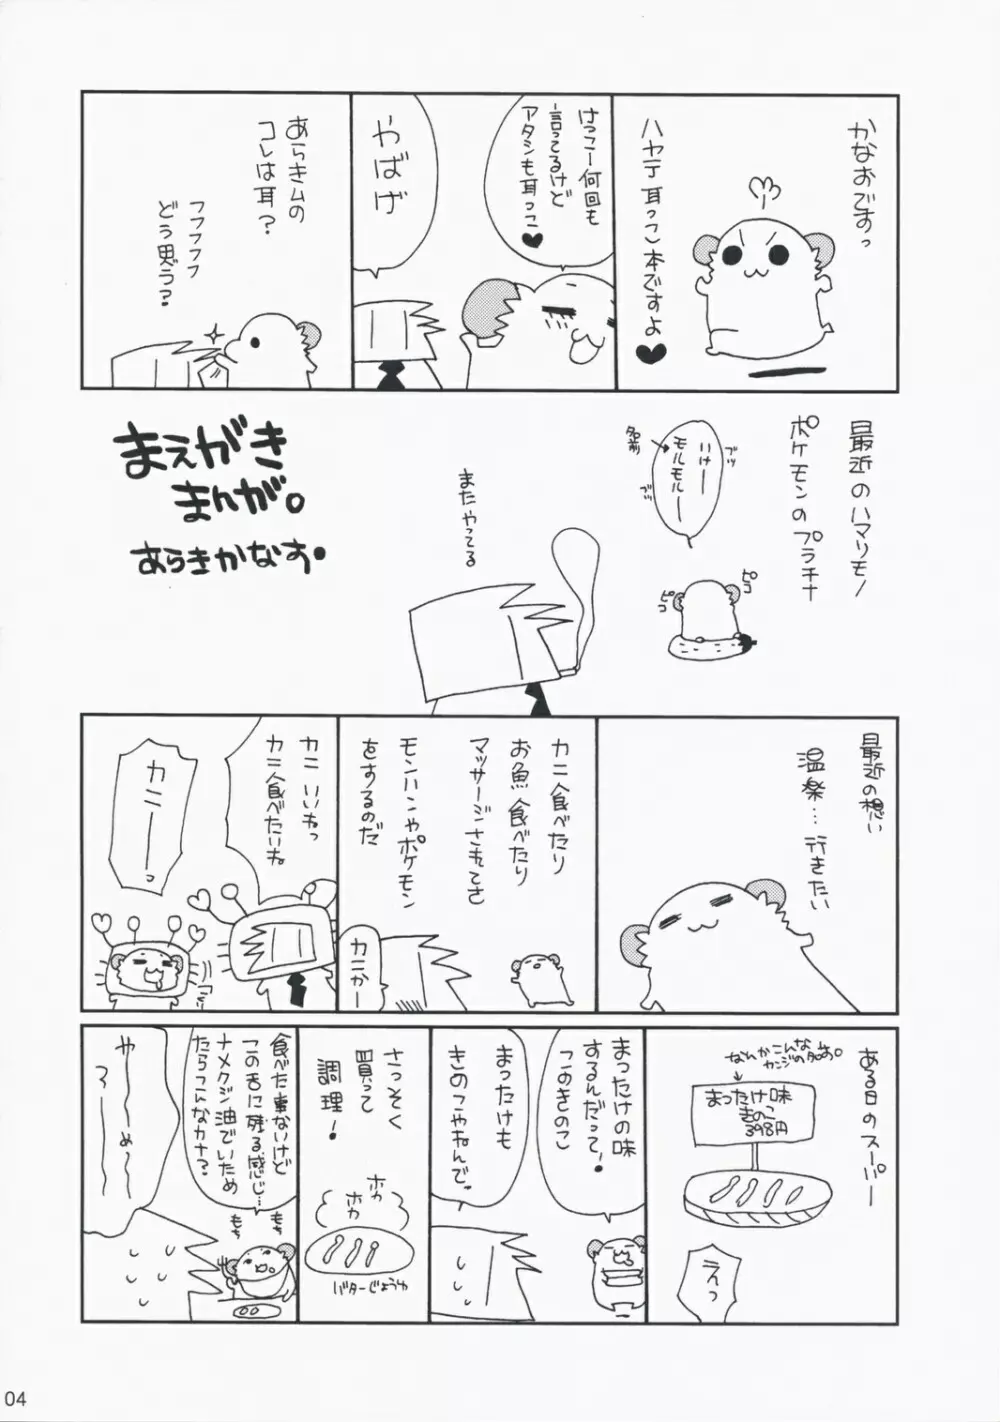 かなおですっ
ハヤテ耳っこ本ですよ♥
けっこー何回も
言ってるけど
アタシも耳っこ♥
やばげ
あらきムの
コレは耳?
フフフフフ
どう思う?
最近のハマリモノ
ポケモンのプラチナ
ブツ
いけー
モルモルー
ブツ
名前
ピコ
ピコ
またやってる
まえがき
まんが。
あらきかなお。
最近の想い
温泉…行きたい
カニ食べたり
お魚食べたり
マッサージされてさ
モンハンやポケモン
をするのだ
カニかー
カニいいねっ
カニ食べたいね。
カニーーっ
ある日のスーパー
なんかこんな
カンジの名前。
まったけ味
きのこ
398円
えっ
まったけの味
するんだって!
このきのこ
まったけも
きのこやねんで。
さっそく
買って
調理!
ホカ
ホカ
バターじょうゆ
食べた事ないけど
この舌に残る感じ…
ナメクジ油でいため
たらこんなカナ?
もち
もち
やーーめっーー